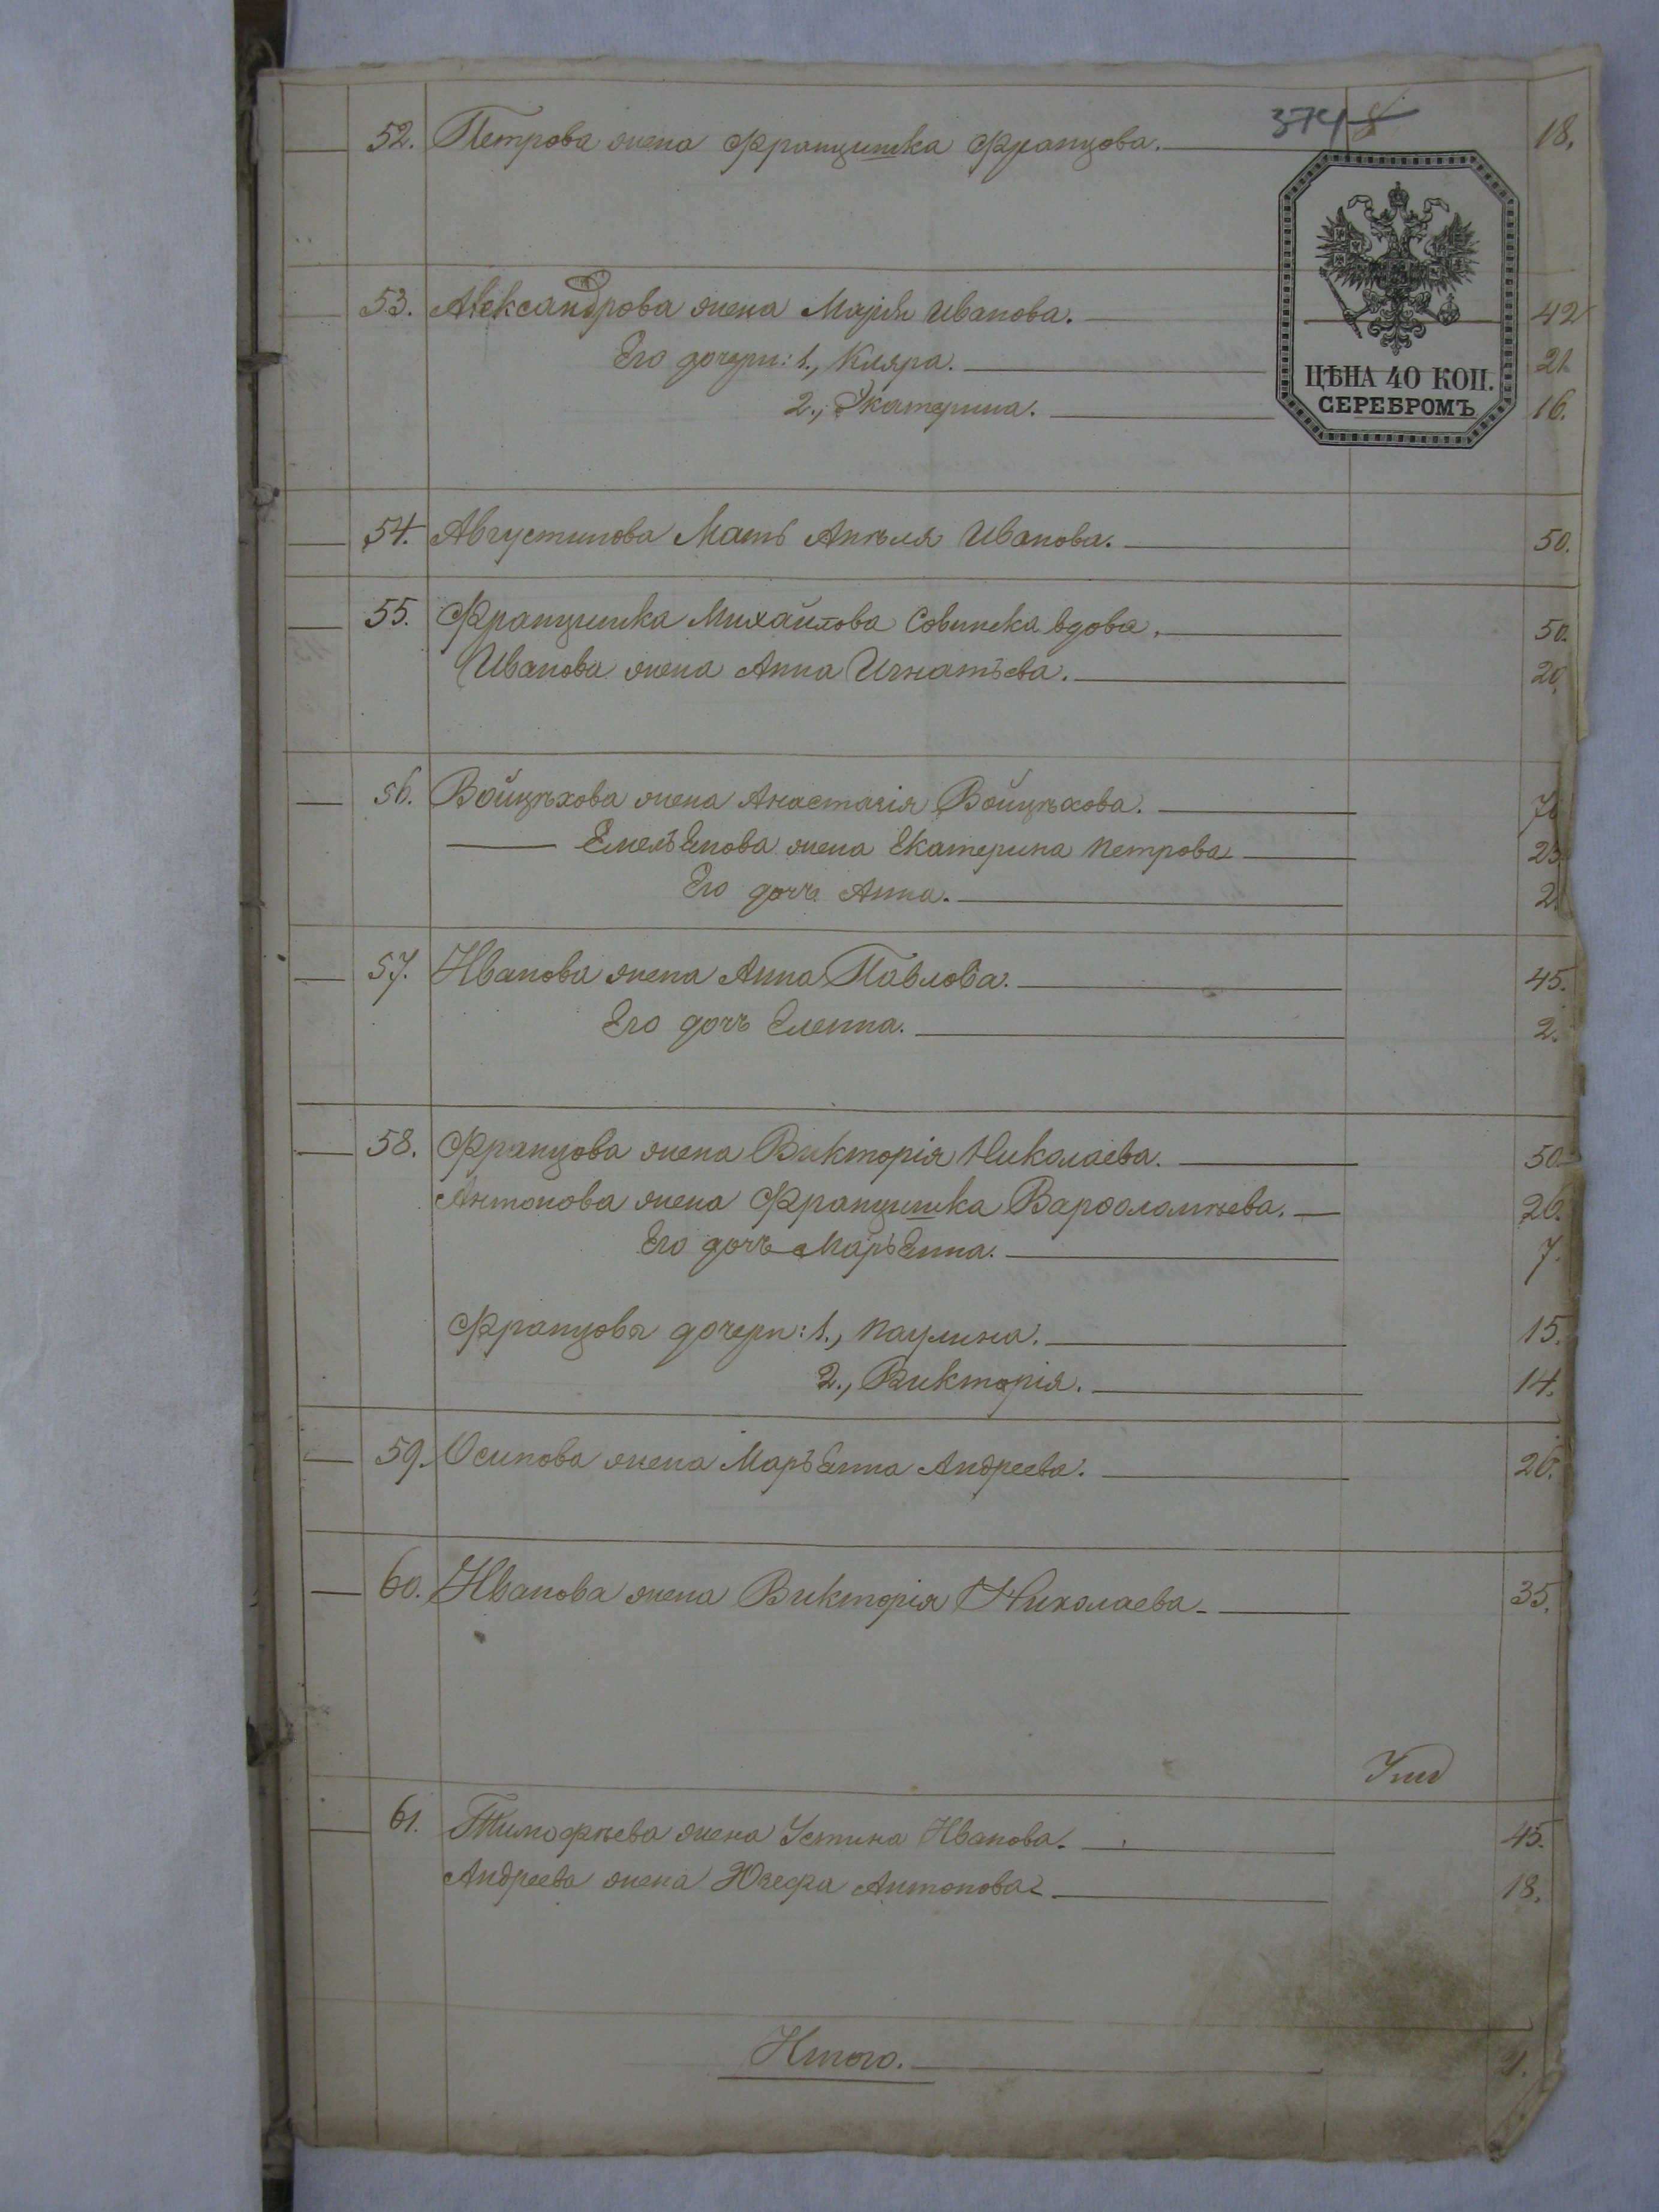 374 8
52. Петрова жена Францишка Францова. 18.
53. Александрова жена Марія Иванова. 42
Его дочери: 1., Кляра. 21.
2., Екатерина. 16.
ЦѢНА 40 КОП.
СЕРЕБРОМЪ
54. Августинова Мать Анѣля Иванова. 50.
55. Францишка Михайлова Совинска вдова. 50.
Иванова жена Анна Игнатьева. 20.
56. Войцѣхова жена Анастазія Войцѣхова.
Емельенова жена Екатерина Петрова 23.
Его дочь Анна. 2.
57. Иванова жена Анна Павлова. 45.
Его дочь Еленна. 2.
58. Францова жена Викторія Николаева. 50.
Антонова жена Францишка Варѳоломѣева. 26.
Его дочь Марьенна. 7.
Францовы дочери: 1., Паулина. 15.
2., Викторія. 14.
59. Осипова жена Марьенна Андреева. 26.
60. Иванова жена Викторія Николаева 35.
61. Тимофѣева жена Устина Иванова. 45.
Андреева жена Юзефа Антонова 18.
Итого.